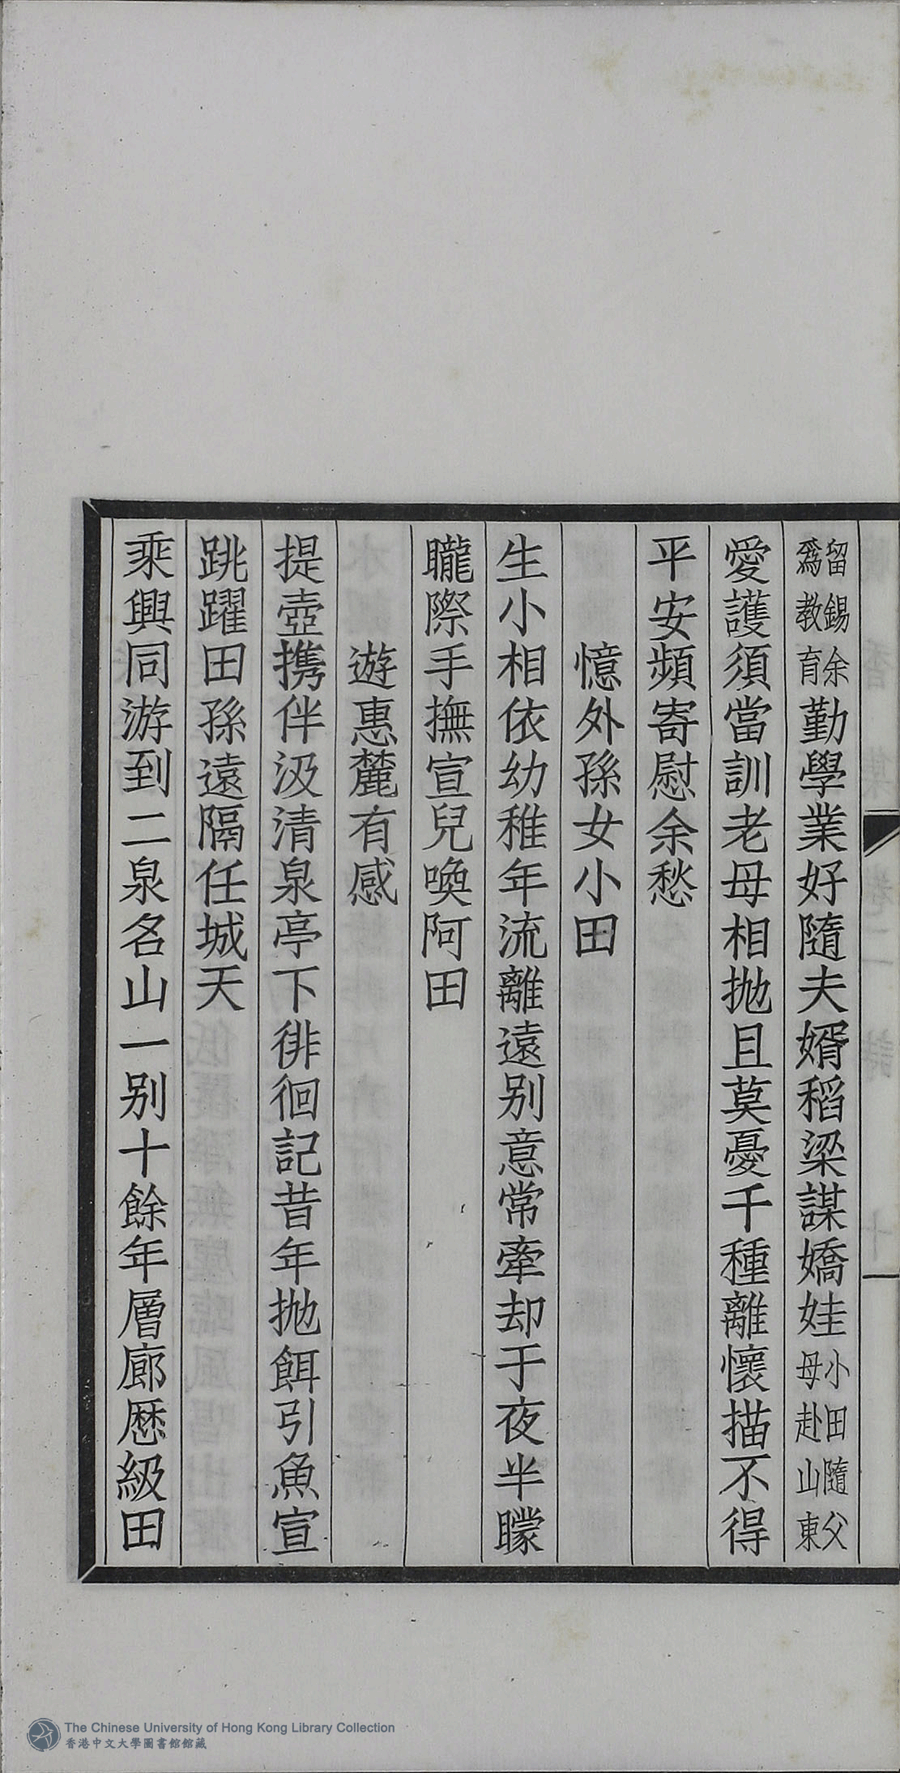 留錫余為教育勤學業好隨夫婿稻梁謀嬌娃小田隨父母赴山東
愛護須當訓老母相拋且莫憂千種離懷描不得
平安頻寄慰余愁
憶外孫女小田
生小相依幼稚年流離遠別意常牽却于夜半矇
矓際手撫宣兒喚阿田
遊惠麓有感
提壺攜伴汲清泉亭下徘徊記昔年拋餌引魚宣
跳躍田孫遠隔任城天
乘興同游到二泉名山一別十餘年層廊歷級田
The Chinese University of Hong Kong Library Collection
香港中文大學圖書館館藏